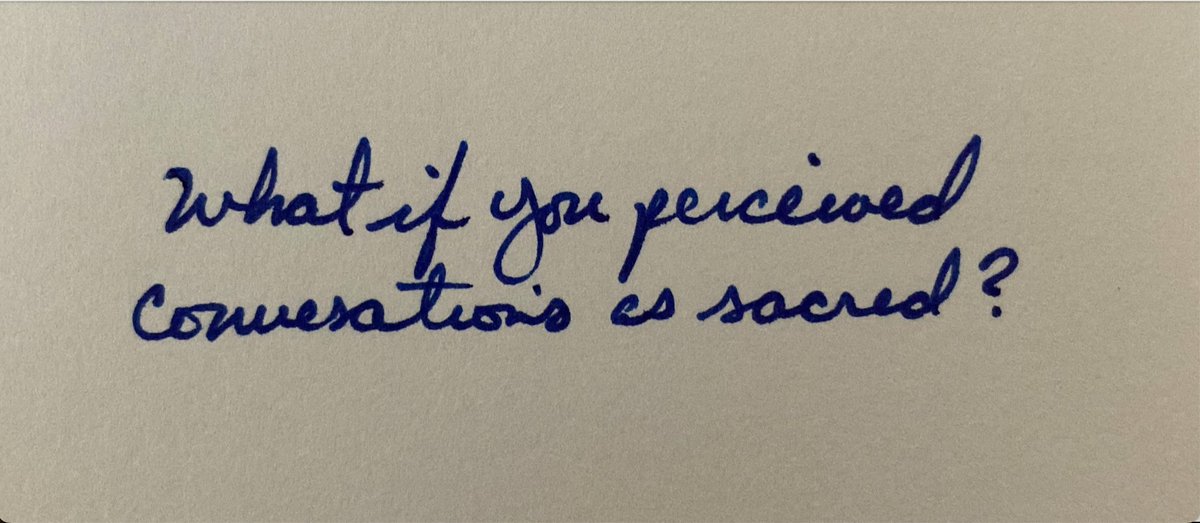 What if you perceived
Conversations as sacred?